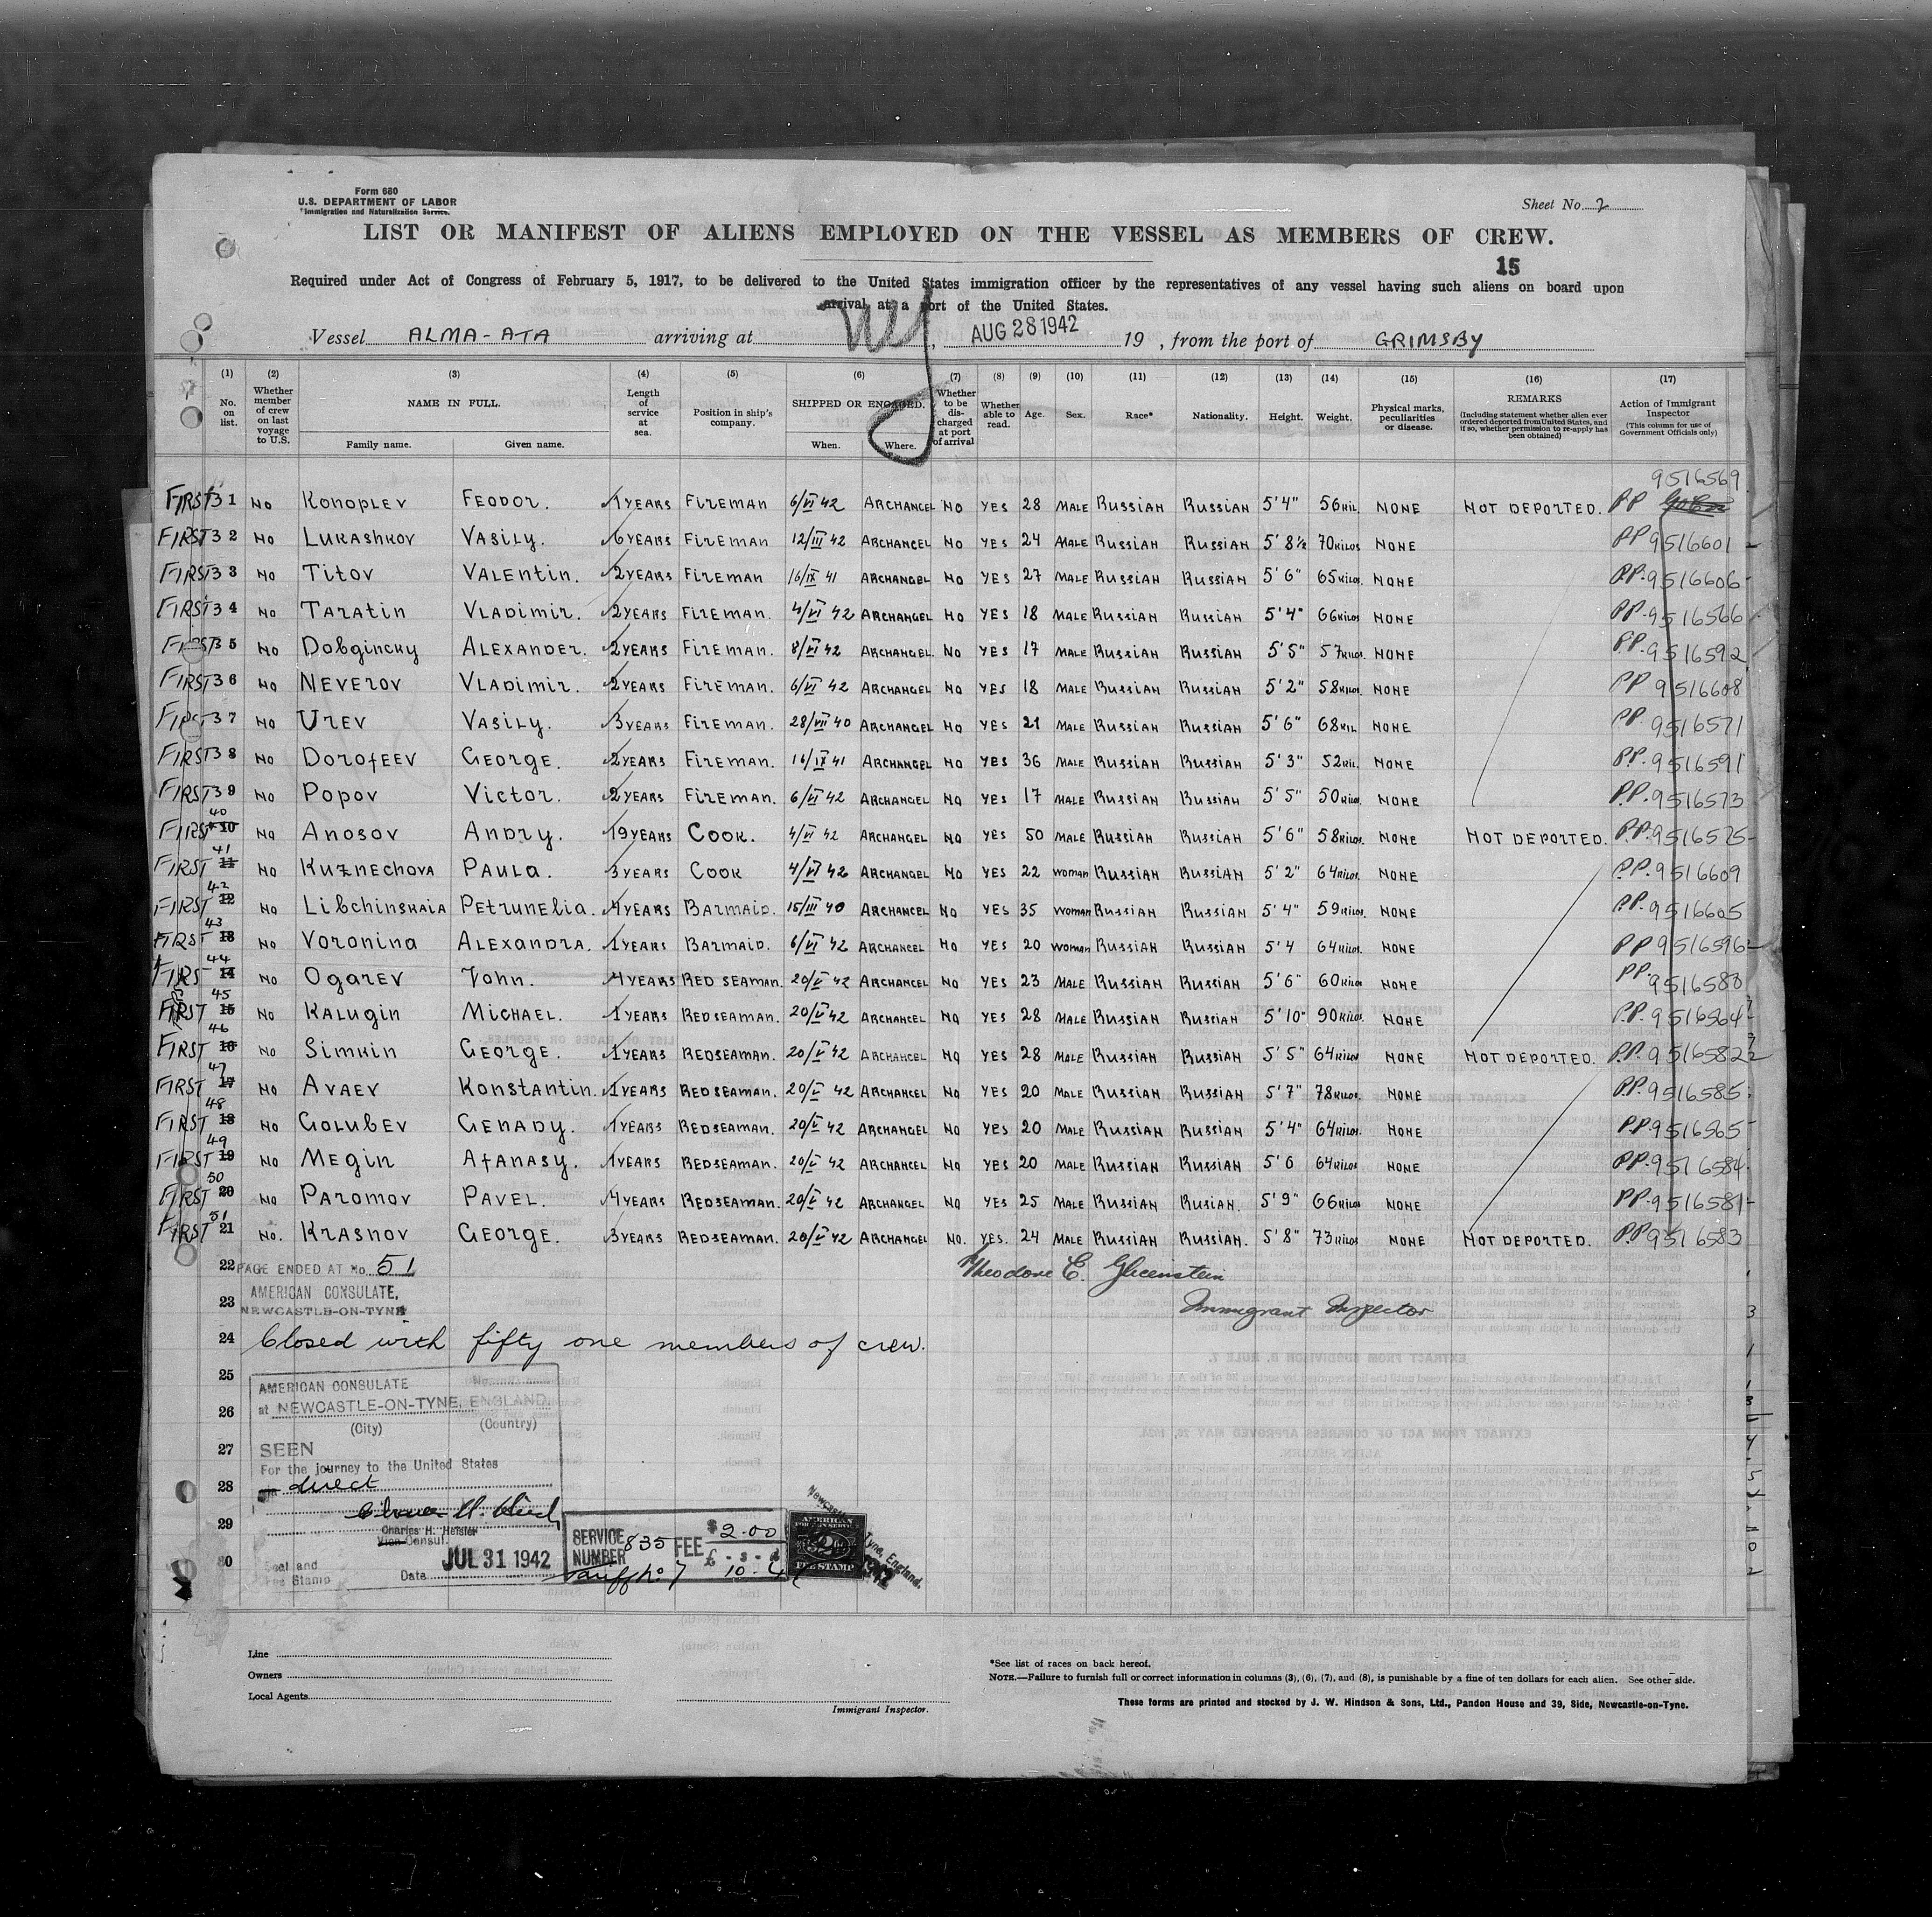 Form 680
U.S. DEPARTMENT OF LABOR
Immigration and Naturalization Service.
Sheet No. 2
LIST OR MANIFEST OF ALIENS EMPLOYED ON THE VESSEL AS MEMBERS OF CREW.
15
Required under Act of Congress of February 5, 1917, to be delivered to the United States immigration officer by the representatives of any vessel having such aliens on board upon
arrival at a port of the United States.
Vessel ALMA-ATA arriving at NY, AUG 28 1942 19 , from the port of GRIMSBY
(1) (2) (3) (4) (5) (6) (7) (8) (9) (10) (11) (12) (13) (14) (15) (16) (17)
No. on list. Whether member of crew on last voyage to U.S. NAME IN FULL. Family name. Given name. Length of service at sea. Position in ship's company. SHIPPED OR ENGAGED. When. Where. Whether to be discharged at port of arrival Whether able to read. Age. Sex. Race* Nationality. Height. Weight. Physical marks, peculiarities or disease. REMARKS (Including statement whether alien ever ordered deported from United States, and if so, whether permission to re-apply has been obtained) Action of Immigrant Inspector (This column for use of Government Officials only)
9516569
FIRST 31 No Konoplev Feodor. 1 YEARS Fireman 6/VI 42 ARCHANGEL No YES 28 MALE Russian Russian 5'4" 56 KIL. NONE NOT DEPORTED. PP
FIRST 32 No Lukashkov Vasily. 6 YEARS Fireman 12/III 42 ARCHANGEL No YES 24 MALE Russian Russian 5'8½ 70 KILOS NONE PP 9516601
FIRST 33 No Titov Valentin. 2 YEARS Fireman 16/IX 41 ARCHANGEL No YES 27 MALE Russian Russian 5'6" 65 KILOS. NONE P.P. 9516606
FIRST 34 No Taratin Vladimir. 2 YEARS Fireman. 4/VI 42 ARCHANGEL No YES 18 MALE Russian Russian 5'4" 66 KILOS NONE P.P. 9516566
FIRST 35 No Dobgincky Alexander. 2 YEARS Fireman. 8/VI 42 ARCHANGEL. No YES 17 MALE Russian Russian 5'5" 57 KILOS. NONE P.P. 9516592
FIRST 36 No Neverov Vladimir. 2 YEARS Fireman. 6/VI 42 ARCHANGEL No YES 18 MALE Russian Russian 5'2" 58 KILOS. NONE PP 9516608
FIRST 37 No Urev Vasily. 3 YEARS Fireman. 28/VII 40 ARCHANGEL No YES 21 MALE Russian Russian 5'6" 68 KIL NONE P.P. 9516571
FIRST 38 No Dorofeev George. 2 YEARS Fireman. 16/IX 41 ARCHANGEL No YES 36 MALE Russian Russian 5'3" 52 KIL. NONE P.P. 9516591
FIRST 39 No Popov Victor. 2 YEARS Fireman. 6/VI 42 ARCHANGEL No YES 17 MALE Russian Russian 5'5" 50 KILOS. NONE P.P. 9516573
FIRST 40 No Anosov Andry. 19 YEARS Cook. 4/VI 42 ARCHANGEL No YES 50 MALE Russian Russian 5'6" 58 KILOS. NONE NOT DEPORTED. P.P. 9516575
FIRST 41 No Kuznechova Paula. 3 YEARS Cook 4/VI 42 ARCHANGEL No YES 22 WOMAN Russian Russian 5'2" 64 KILOS. NONE P.P. 9516609
FIRST 42 No Libchinskaia Petrunelia. 4 YEARS Barmaid. 15/III 40 ARCHANGEL No YES 35 WOMAN Russian Russian 5'4" 59 KILOS. NONE P.P. 9516605
FIRST 43 No Voronina Alexandra. 1 YEARS Barmaid. 6/VI 42 ARCHANGEL No YES 20 WOMAN Russian Russian 5'4 64 KILOS. NONE PP 9516596
FIRST 44 No Ogarev John. 4 YEARS RED SEAMAN. 20/V 42 ARCHANGEL No YES 23 MALE Russian Russian 5'6" 60 KILOS NONE P.P. 9516588
FIRST 45 No Kalugin Michael. 1 YEARS REDSEAMAN. 20/V 42 ARCHANGEL No YES 28 MALE Russian Russian 5'10" 90 KILOS. NONE P.P. 9516564
FIRST 46 No Simkin George. 1 YEARS REDSEAMAN. 20/V 42 ARCHANGEL No YES 28 MALE Russian Russian 5'5" 64 KILOS NONE NOT DEPORTED. P.P. 9516582
FIRST 47 No Avaev Konstantin. 1 YEARS REDSEAMAN. 20/V 42 ARCHANGEL No YES 20 MALE Russian Russian 5'7" 78 KILOS. NONE P.P. 9516585
FIRST 48 No Golubev Genady. 1 YEARS REDSEAMAN. 20/V 42 ARCHANGEL No YES 20 MALE Russian Russian 5'4" 64 KILOS. NONE P.P. 9516565
FIRST 49 No Megin Afanasy. 1 YEARS REDSEAMAN. 20/V 42 ARCHANGEL No YES 20 MALE Russian Russian 5'6 64 KILOS NONE P.P. 9516584
FIRST 50 No Paromov Pavel. 4 YEARS REDSEAMAN. 20/V 42 ARCHANGEL No YES 25 MALE Russian Rusian. 5'9" 66 KILOS NONE P.P. 9516581
FIRST 51 No. Krasnov George. 3 YEARS REDSEAMAN. 20/V 42 ARCHANGEL No. YES. 24 MALE Russian Russian. 5'8" 73 KILOS NONE NOT DEPORTED. P.P. 9516583
22 PAGE ENDED AT No. 51 Theodore E. Glicenstein
AMERICAN CONSULATE,
23 NEWCASTLE-ON-TYNE Immigrant Inspector
24 Closed with fifty one members of crew.
25
AMERICAN CONSULATE
26 at NEWCASTLE-ON-TYNE, ENGLAND.
(City) (Country)
27 SEEN
For the journey to the United States
28 direct
29
Charles H. Heisler
Vice Consul.
30 Seal and Fee Stamp Date JUL 31 1942
SERVICE NUMBER 835 FEE $2.00
Tariff No. 7
£ - s - d
AMERICAN
FEE STAMP
Line
Owners
Local Agents
Immigrant Inspector.
*See list of races on back hereof.
NOTE.—Failure to furnish full or correct information in columns (3), (6), (7), and (8), is punishable by a fine of ten dollars for each alien. See other side.
These forms are printed and stocked by J. W. Hindson & Sons, Ltd., Pandon House and 39, Side, Newcastle-on-Tyne.